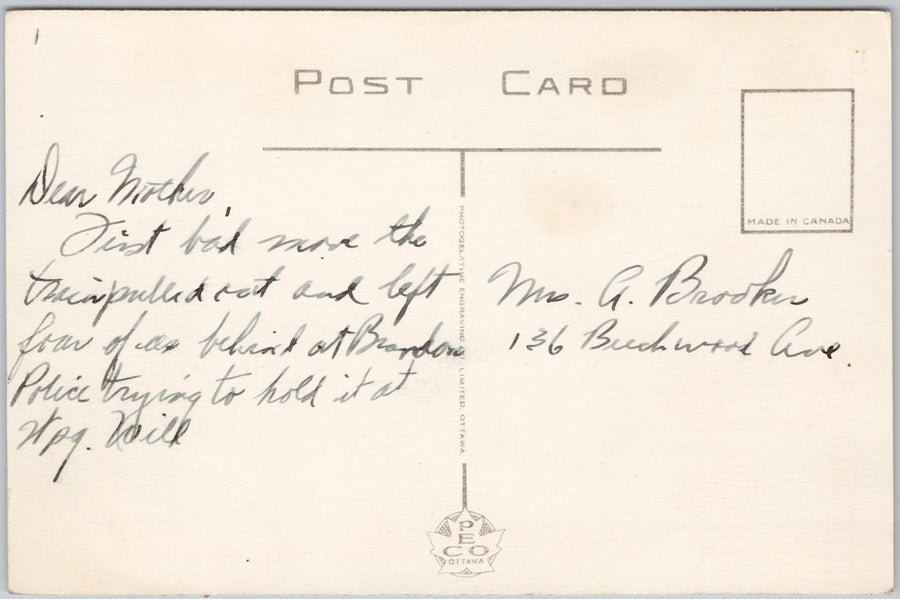 POST CARD
MADE IN CANADA
Dear Mother,
First bad move the
train pulled out and left
four of us behind at Brandon
Police trying to hold it at
Wpg. Will
PHOTOGELATINE ENGRAVING CO. LIMITED, OTTAWA
Mrs. A. Brooker
136 Beechwood Ave.
PECO
OTTAWA